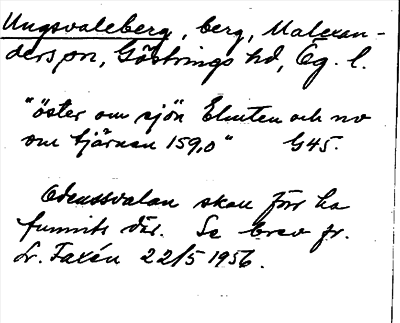 Ungsvaleberg, berg, Malexan-
ders sn, Göstrings hd, Ög. l.
"öster om sjön Elmten och nv
om tjärnan 159,0" G45.
Odenssvalan skau förr ha
funnits där. Se brev fr.
Lr. Faxén 22/5 1956.